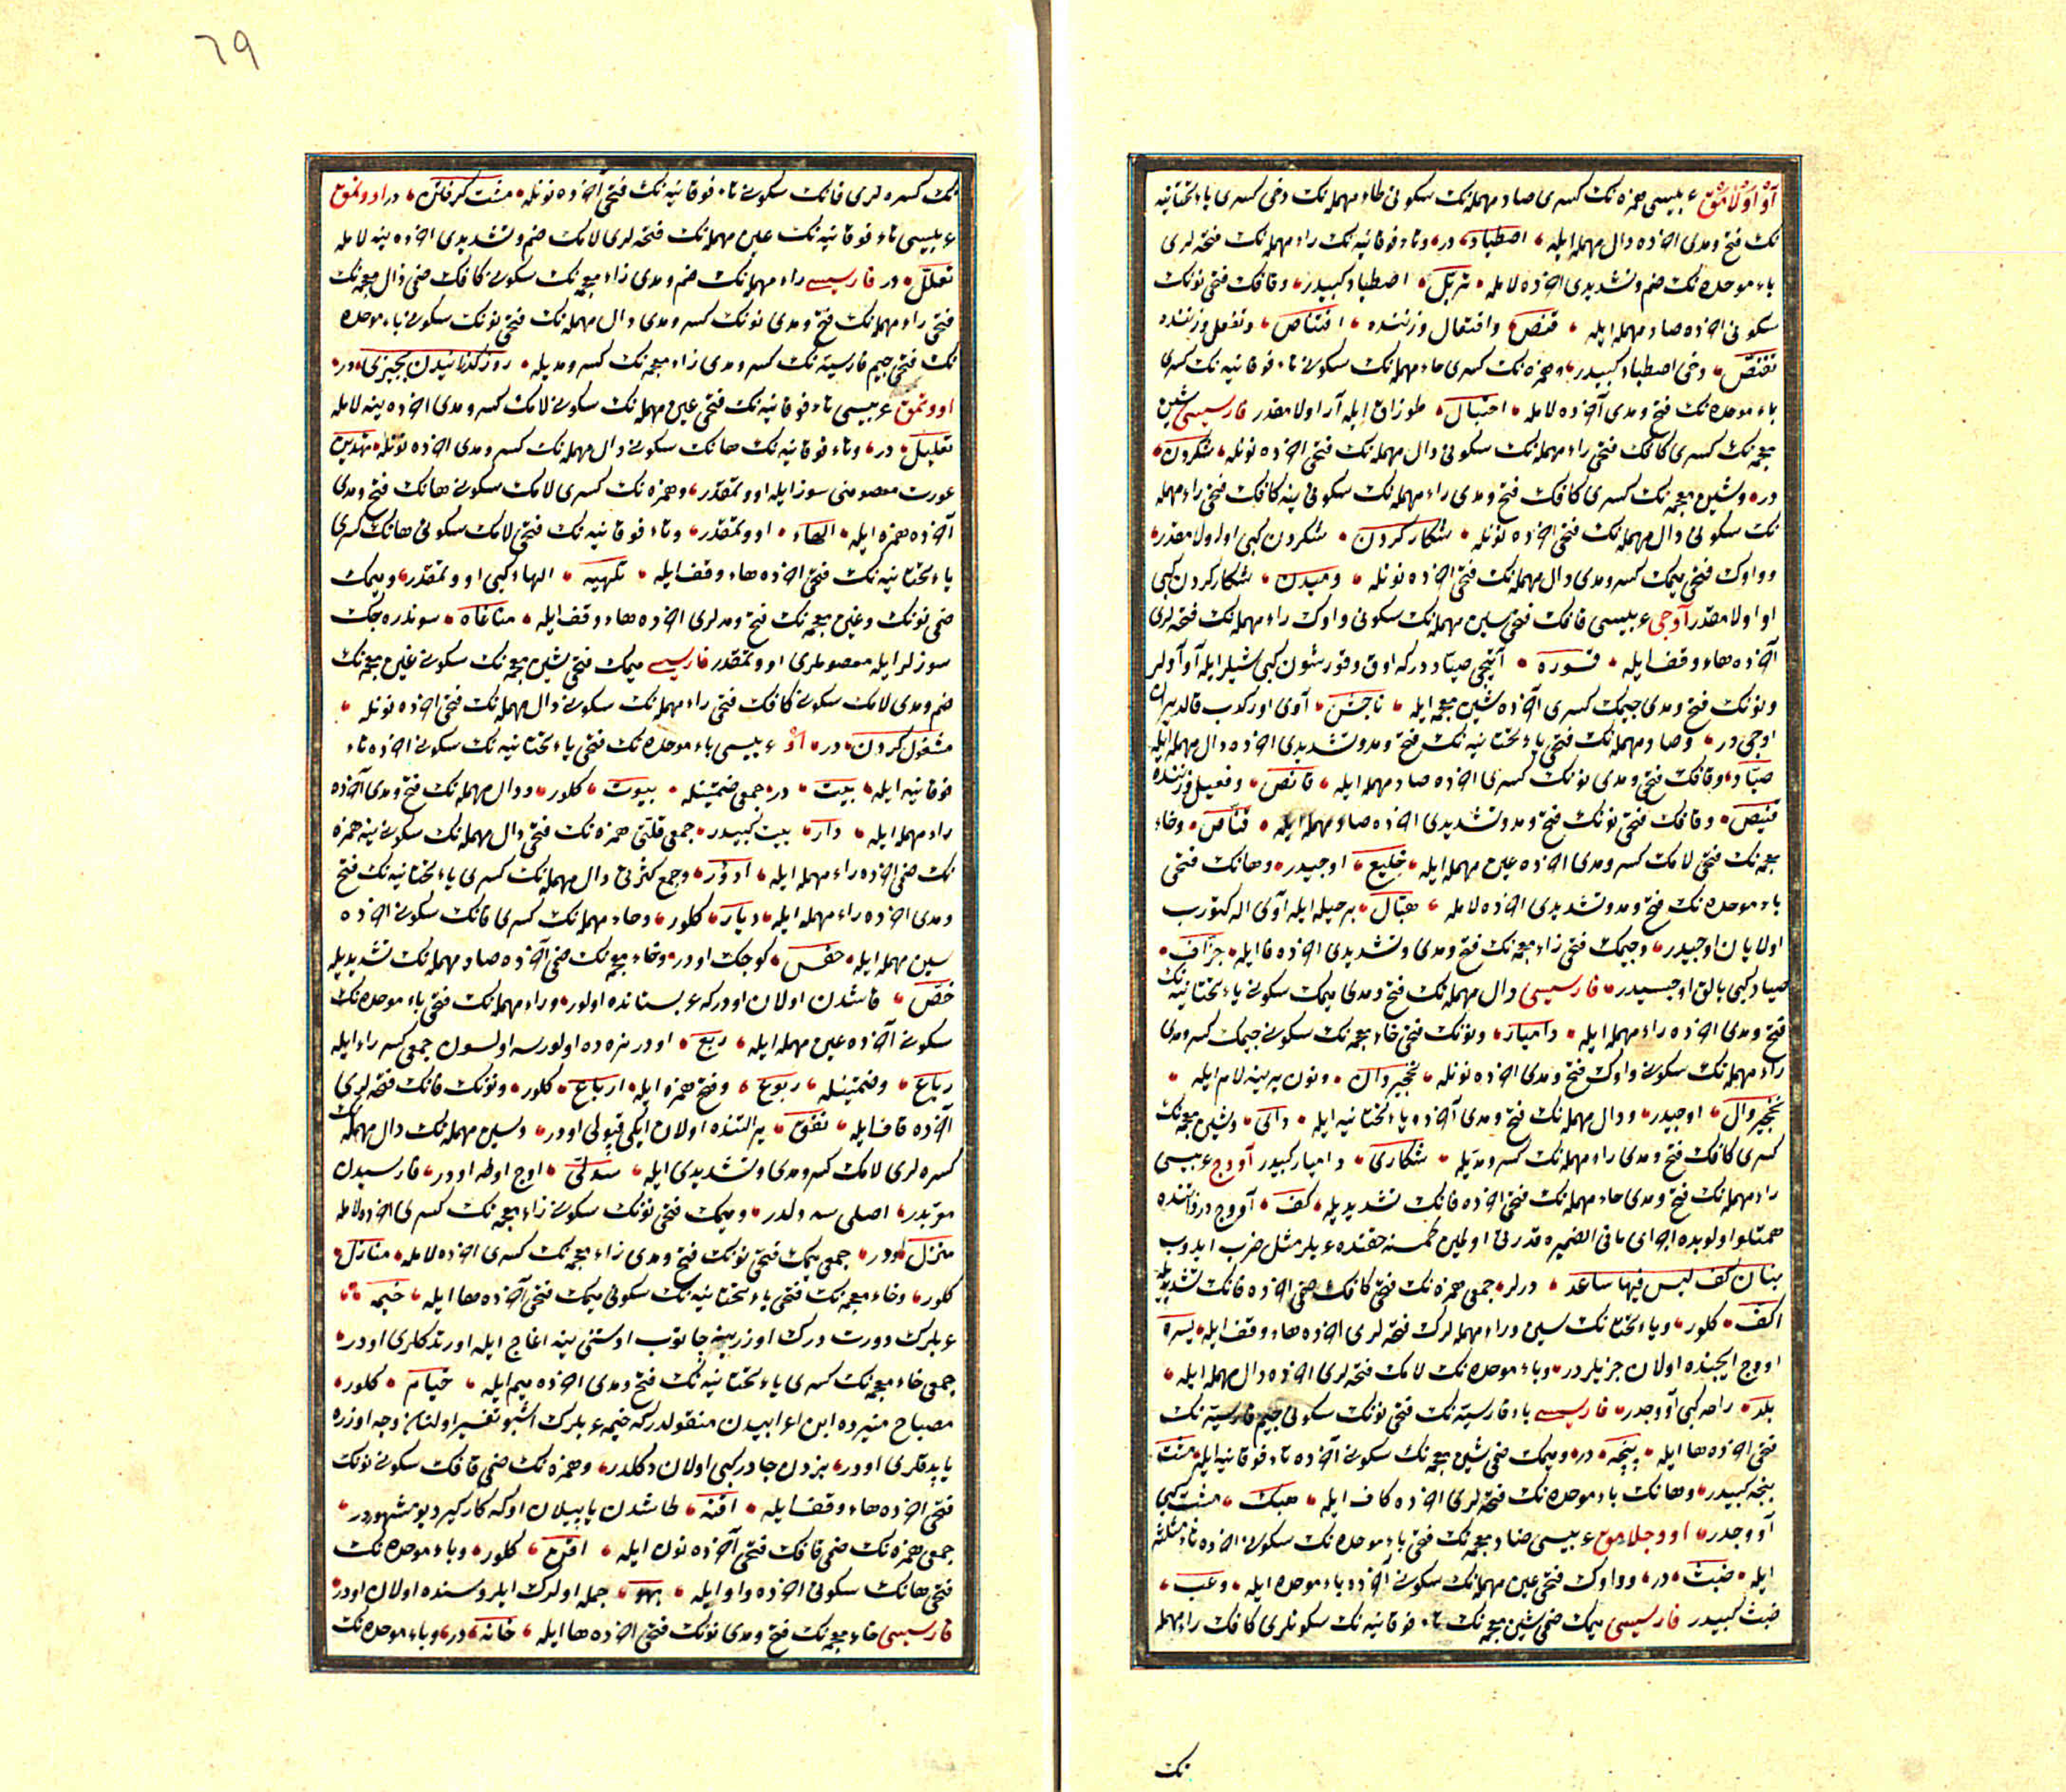 آو اولامق عربیسی همزه‌نك كسری صاد مهمله‌نك سكونی طاء مهمله‌نك دخی كسری یاء تحتانیه
نك فتح ومدی اخرده دال مهمله ایله اصطیاد در وتاء فوقانیه‌نك راء مهمله‌نك فتحه‌لری
باء موحده‌نك ضم وتشدیدی اخرده لامله تربل اصطیاد كبیدر وقافك فتحی نونك
سكونی اخرده صاد مهمله ایله قنص وافتعال وزننده اقتناص وتفعل وزننده
تقنص دخی اصطیاد كبیدر وهمزه‌نك كسری حاء مهمله‌نك سكونی تاء فوقانیه‌نك كسری
باء موحده‌نك فتح ومدی آخرده لامله احتبال طوزاق ایله آو اولامقدر فارسیسی شین
معجمه‌نك كسری كافك فتحی راء مهمله‌نك سكونی دال مهمله‌نك فتحی اخرده نونله شكردن
در وشین معجمه‌نك كسری كافك فتح ومدی راء مهمله‌نك سكونی ینه كافك فتحی راء مهمله
نك سكونی دال مهمله‌نك فتحی اخرده نونله شكار كردن شكردن كبی اولامقدر
وواوك فتحی میمك كسر ومدی دال مهمله‌نك فتحی اخرده نونله ومیدن شكار كردن كبی
او اولامقدر آوجی عربیسی قافك فتحی سین مهمله‌نك سكونی واوك راء مهمله‌نك فتحه‌لری
آخرده هاء وقف ایله قسوره آتیجی صیاد دركه اوق وقورشون كبی شیلر ایله آو آولر
ونونك فتح ومدی جیمك كسری آخرده شین معجمه ایله ناجش آوی اوركدب قالدیران
اوجی در وصاد مهمله‌نك فتحی یاء تحتانیه‌نك فتح ومد وتشدیدی اخرده دال مهمله ایله
صیاد وقافك فتح ومدی نونك كسری اخرده صاد مهمله ایله قانص وفعیل وزننده
قنیص وقافك فتحی نونك فتح ومد وتشدیدی اخرده صاد مهمله ایله قناص وخاء
معجمه‌نك فتحی لامك كسر ومدی اخرده عین مهمله ایله خلیع اوجیدر وهانك فتحی
باء موحده‌نك فتح ومد وتشدیدی اخرده لامله هبال بر حیله ایله آوی اله كتورب
اولایان اوجیدر وجیمك فتحی زاء معجمه‌نك فتح ومدی وتشدیدی اخرده فا ایله جزاف
صیاد كبی بالق اوجسیدر فارسیسی دال مهمله‌نك فتح ومدی میمك سكونی یاء تحتانیه‌نك
فتح ومدی اخرده راء مهمله ایله دامیار ونونك فتحی خاء معجمه‌نك سكونی جیمك كسر ومدی
راء مهمله‌نك سكونی واوك فتح ومدی اخرده نونله نخجیروان ونون یرینه لام ایله
نخجیروال اوجیدر ودال مهمله‌نك فتح ومدی آخرده یاء تحتانیه ایله دای وشین معجمه‌نك
كسری كافك فتح ومدی راء مهمله‌نك كسر ومدیله شكاری دامیار كبیدر آووج عربیسی
راء مهمله‌نك فتح ومدی حاء مهمله‌نك فتحی اخرده فانك تشدیدیله كف آووج در
همتلو اولوبده اجرای مافی الضمیره قدرتی اولمین كمسنه حقنده عربلر مثل ضرب ایدوب
بنان كف لیس فیها ساعد درلر جمعی همزه‌نك فتحی كافك ضمی اخرده فانك تشدیدیله
اكف كلور ویاء تحتانیه‌نك سین وراء مهمله‌لرك فتحه‌لری اخرده هاء وقف ایله یسره
اووج ایچنده اولان چزیلردر وباء موحده‌نك لامك فتحه‌لری اخرده دال مهمله ایله
بلد راحه كبی آووجدر فارسیسی باء فارسیه‌نك فتحی نونك سكونی جیم فارسیه‌نك
فتحی اخرده ها ایله پنجه در ومیمك ضمی شین معجمه‌نك سكونی آخرده تاء فوقانیه ایله مشت
پنجه كبیدر وهانك باء موحده‌نك فتحه‌لری اخرده كاف ایله هبك مشت كبی
آووجدر اووجلامق عربیسی ضاد معجمه‌نك فتحی باء موحده‌نك سكونی اخرده ثاء مثلثه
ایله ضبث در وواوك فتحی عین مهمله‌نك سكونی آخرده باء موحده ایله وعب
ضبث كبیدر فارسیسی میمك ضمی شین معجمه‌نك تاء فوقانیه‌نك سكونلری كافك راء مهمله
نك
٦٩
نك كسره‌لری فانك سكونی تاء فوقانیه‌نك فتحی آخرده نونله مشت كرفتن در اووتمق
عربیسی تاء فوقانیه‌نك عین مهمله‌نك فتحه‌لری لامك ضم وتشدیدی اخرده ینه لامله
تعلل در فارسیسی راء مهمله‌نك ضم ومدی زاء معجمه‌نك سكونی كافك ضمی ذال معجمه‌نك
فتحی راء مهمله‌نك فتح ومدی نونك كسر ومدی دال مهمله‌نك فتحی نونك سكونی باء موحده
نك فتحی جیم فارسیه‌نك كسر ومدی زاء معجمه‌نك كسر ومدیله روز كذرانیدن بچیزی در
اووتمق عربیسی تاء فوقانیه‌نك فتحی عین مهمله‌نك سكونی لامك كسر ومدی اخرده ینه لامله
تعلیل در وتاء فوقانیه‌نك هانك سكونی دال مهمله‌نك كسر ومدی اخرده نونله تهدین
عورت معصومنی سوز ایله اووتمقدر وهمزه‌نك كسری لامك سكونی هانك فتح ومدی
آخرده همزه ایله الهاء اووتمقدر وتاء فوقانیه‌نك فتحی لامك سكونی هانك كسری
یاء تحتانیه‌نك فتحی اخرده هاء وقف ایله تلهیه الهاء كبی اووتمقدر ومیمك
ضمی نونك وغین معجمه‌نك فتح ومدلری اخرده هاء وقف ایله مناغاه سوندره‌جك
سوزلر ایله معصوملری اووتمقدر فارسیسی میمك فتحی شین معجمه‌نك سكونی غین معجمه‌نك
ضم ومدی لامك سكونی كافك فتحی راء مهمله‌نك سكونی دال مهمله‌نك فتحی اخرده نونله
مشغول كردن در او عربیسی باء موحده‌نك فتحی یاء تحتانیه‌نك سكونی اخرده تاء
فوقانیه ایله بیت در جمعی ضمتینله بیوت كلور ودال مهمله‌نك فتح ومدی آخرده
راء مهمله ایله دار بیت كبیدر جمع قلتی همزه‌نك فتحی دال مهمله‌نك سكونی ینه همزه
نك ضمی اخرده راء مهمله ایله ادؤر وجمع كثرتی دال مهمله‌نك كسری یاء تحتانیه‌نك فتح
ومدی اخرده راء مهمله ایله دیار كلور وحاء مهمله‌نك كسری فانك سكونی اخرده
سین مهمله ایله حفس كوچك اودر وخاء معجمه‌نك ضمی آخرده صاد مهمله‌نك تشدیدیله
خص قامشدن اولان اودركه عربستانده اولور وراء مهمله‌نك فتحی باء موحده‌نك
سكونی آخرده عین مهمله ایله ربع اودر نره‌ده اولورسه اولسون جمعی كسر راء ایله
رباع وضمتینله ربوع وفتح همزه ایله ارباع كلور ونونك فانك فتحه‌لری
آخرده قاف ایله نفق یر التنده اولان ایكی قپولی اودر وسین مهمله‌نك دال مهمله‌نك
كسره‌لری لامك كسر ومدی وتشدیدی ایله سدلی اوچ اوطه اودر فارسیدن
معربدر اصلی سه دلدر ومیمك فتحی نونك سكونی زاء معجمه‌نك كسری اخرده لامله
منزل اودر جمعی میمك فتحی نونك فتح ومدی زاء معجمه‌نك كسری اخرده لامله منازل
كلور وخاء معجمه‌نك فتحی یاء تحتانیه‌نك سكونی میمك فتحی آخرده ها ایله خیمه
عربلرك دورت دیرك اوزرینه چاتوب اوستنی ینه اغاج ایله اورتدكلری اودر
جمعی خاء معجمه‌نك كسری یاء تحتانیه‌نك فتح ومدی اخرده میم ایله خیام كلور
مصباح منیرده ابن اعرابیدن منقولدركه خیمه عربلرك اشبو تفسیر اولنان وجه اوزره
یاپدقلری اودر بزدن چادر كبی اولان دكلدر وهمزه‌نك ضمی قافك سكونی نونك
فتحی اخرده هاء وقف ایله اقنه طاشدن یاپیلان اوكه كاركیر دیو مشهوردر
جمعی همزه‌نك ضمی قافك فتحی آخرده نون ایله اقن كلور وباء موحده‌نك
فتحی هانك سكونی اخرده واو ایله بهو جمله اولرك ایلروسنده اولان اودر
فارسیسی خاء معجمه‌نك فتح ومدی نونك فتحی اخرده ها ایله خانه در وباء موحده‌نك